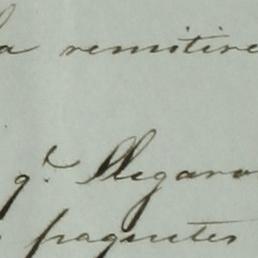 la remitire
q.e llegaro
paquetes